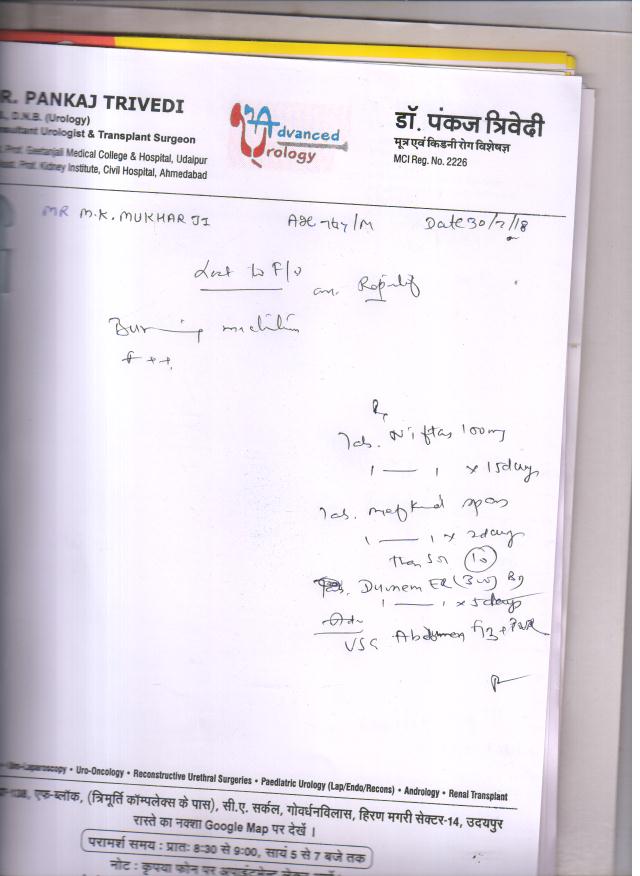 R. PANKAJ TRIVEDI
D.N.B. (Urology)
nsultant Urologist & Transplant Surgeon
Prof. Geetanjali Medical College & Hospital, Udaipur
Prof. Kidney Institute, Civil Hospital, Ahmedabad
Advanced
Urology
डॉ. पंकज त्रिवेदी
मूत्र एवं किडनी रोग विशेषज्ञ
MCI Reg. No. 2226
MR M.K. MUKHARJI Age /M Date 30/7/18
Lost to F/U
on
Burning
+ ++
Rx
Tab. Niftas 100mg
1 — 1 x 15days
Tab. spas
1 — 1 x 2days
then SOS 10
ER (3w)
1 — 1 x 5days
Adv
USG Abdomen + PVR
Uro-Oncology • Reconstructive Urethral Surgeries • Paediatric Urology (Lap/Endo/Recons) • Andrology • Renal Transplant
एफ-ब्लॉक, (त्रिमूर्ति कॉम्पलेक्स के पास), सी.ए. सर्कल, गोवर्धनविलास, हिरण मगरी सेक्टर-14, उदयपुर
रास्ते का नक्शा Google Map पर देखें ।
परामर्श समय : प्रातः 8:30 से 9:00, सायं 5 से 7 बजे तक
नोट : कृपया फोन पर